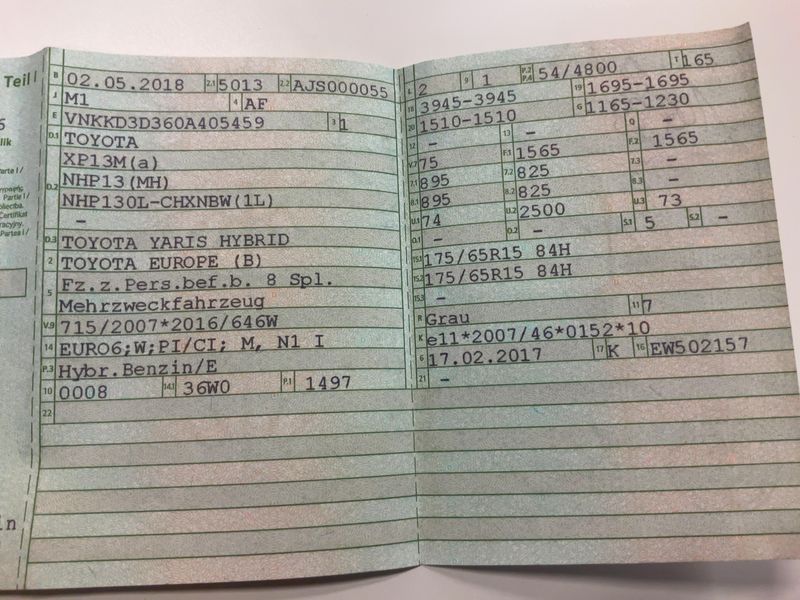 Teil I
B 02.05.2018 2.1 5013 2.2 AJS000055
J M1 4 AF
E VNKKD3D360A405459 3 1
D.1 TOYOTA
XP13M(a)
D.2 NHP13(MH)
NHP130L-CHXNBW(1L)
–
D.3 TOYOTA YARIS HYBRID
2 TOYOTA EUROPE (B)
5 Fz.z.Pers.bef.b. 8 Spl.
Mehrzweckfahrzeug
V.9 715/2007*2016/646W
14 EURO6;W;PI/CI; M, N1 I
P.3 Hybr.Benzin/E
10 0008 14.1 36W0 P.1 1497
22
L 2 9 1 P.2 P.4 54/4800 T 165
18 3945-3945 19 1695-1695
20 1510-1510 G 1165-1230
12 – 13 – Q –
V.7 75 F.1 1565 F.2 1565
7.1 895 7.2 825 7.3 –
8.1 895 8.2 825 8.3 –
U.1 74 U.2 2500 U.3 73
O.1 – O.2 – S.1 5 S.2 –
15.1 175/65R15 84H
15.2 175/65R15 84H
15.3 –
R Grau 11 7
K e11*2007/46*0152*10
6 17.02.2017 17 K 16 EW502157
21 –